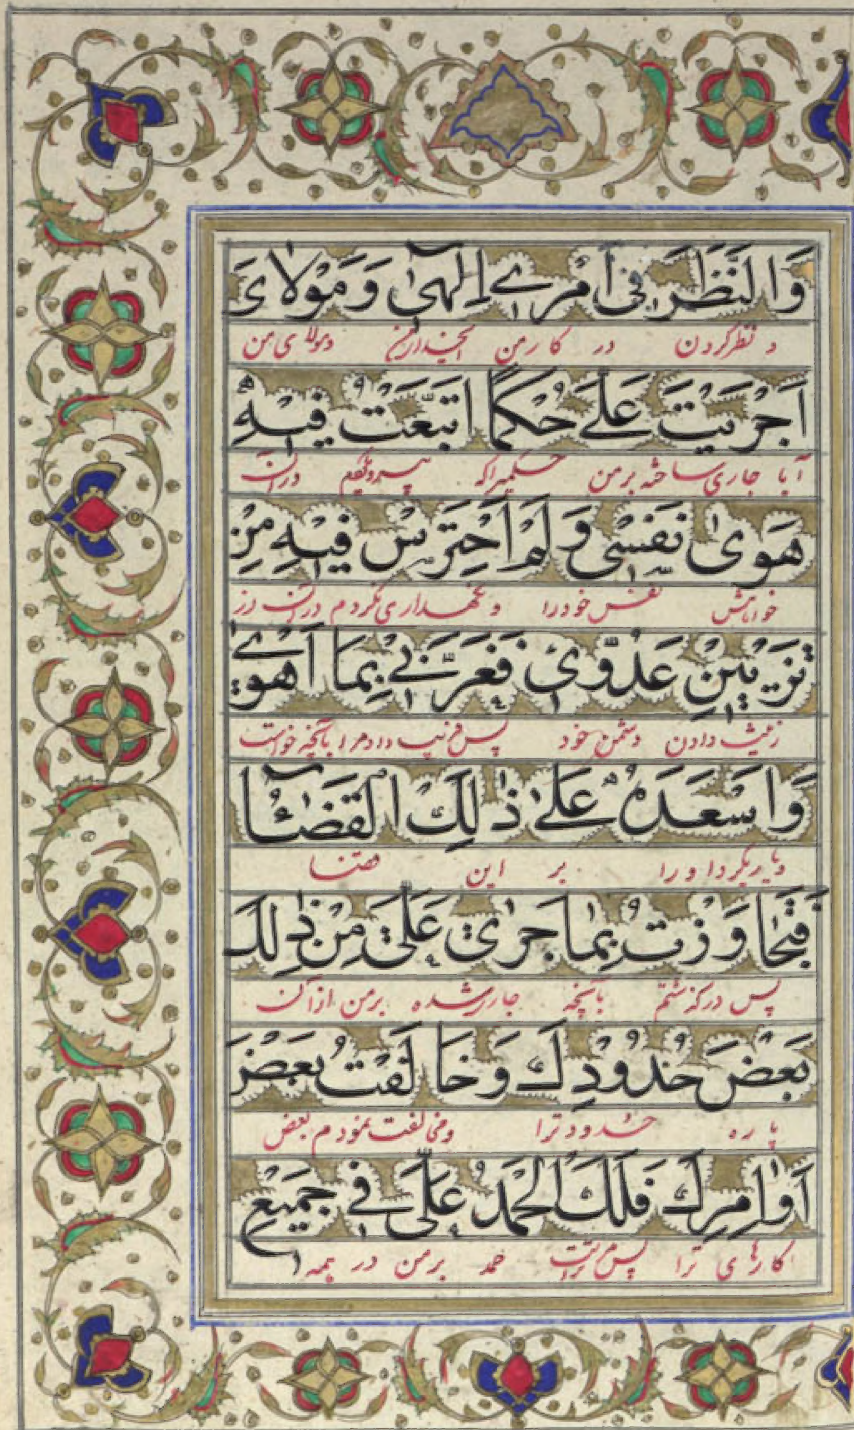 وَالنَّظَرَ فِی اَمْرِے اِلٰهِیٰ وَ مَوْلَایَ
و نظر کردن در کار من ایخدای من و مولای من
اَجْرَیْتَ عَلَےَّ حُکْمًا اتَّبَعْتُ فِیْهِ
آیا جاری ساخته بر من حکمیراکه پیروی کردم در آن
هَوٰی نَفْسِیْ وَ لَمْ اَحْتَرِسْ فِیْهِ مِنْ
خواهش نفس خود را و نگهداری نکردم در آن از
تَزْیِیْنِ عَدُوِّیْ فَغَرَّنِیْ بِمَا اَهْوٰے
زینت دادن دشمن خود پس فریب داد مرا بآنچه خواست
وَ اَسْعَدَهُ عَلٰی ذٰلِكَ الْقَضَآءُ
و یاری کرد او را بر این قضا
فَتَجَاوَزْتُ بِمَا جَرٰی عَلَیَّ مِنْ ذٰلِكَ
پس درگذشتم بآنچه جاری شده بر من از آن
بَعْضَ حُدُوْدِكَ وَ خَالَفْتُ بَعْضَ
پاره حدود ترا و مخالفت نمودم بعض
اَوَامِرِكَ فَلَكَ الْحَمْدُ عَلَیَّ فِیْ جَمِیْعِ
کارهای ترا پس تراست حمد بر من در همه